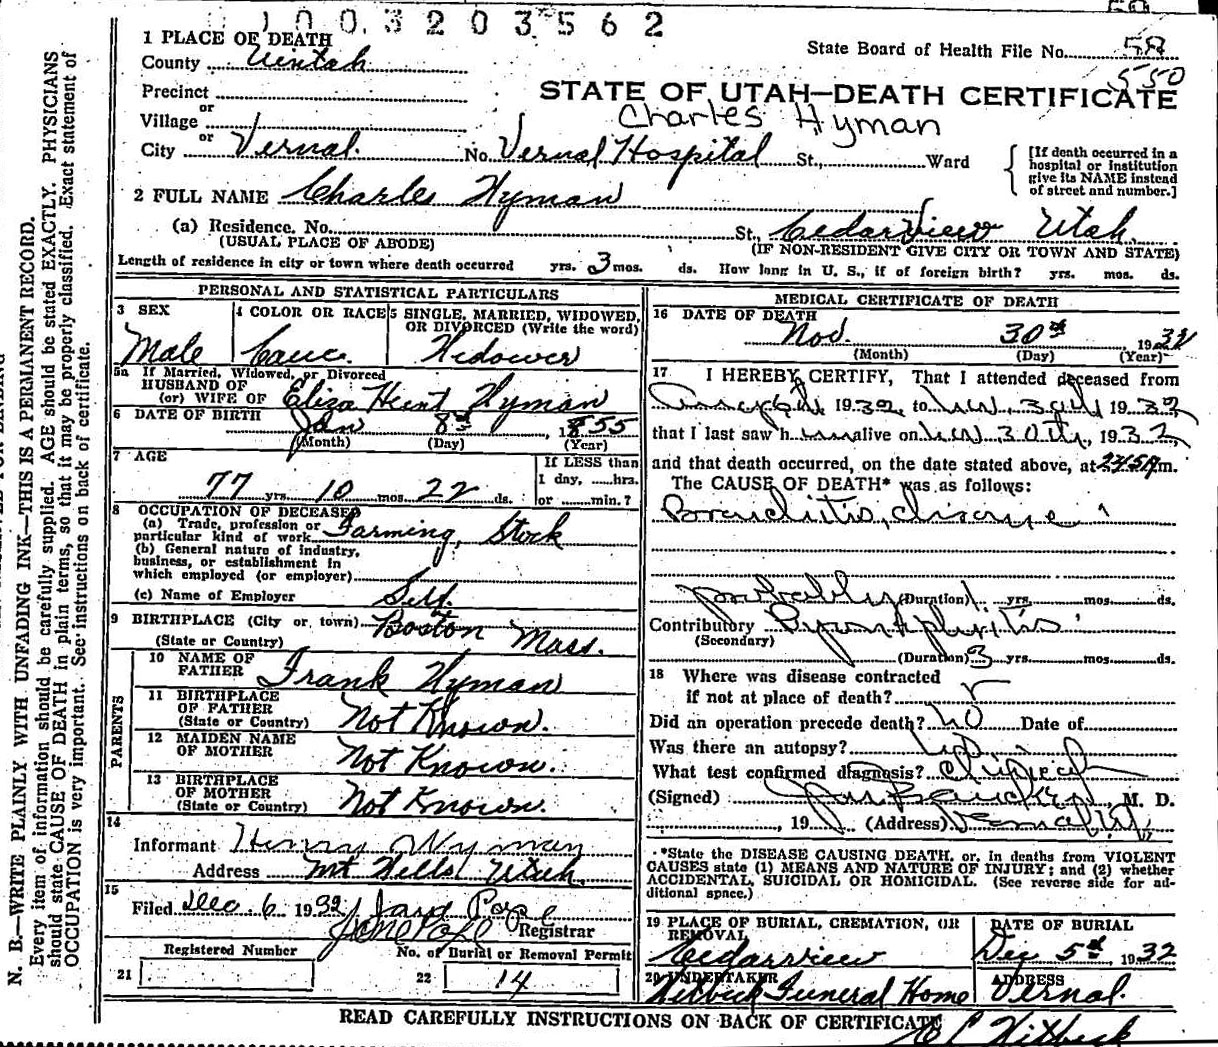 1003203562
1 PLACE OF DEATH
State Board of Health File No. 58
550
County Uintah
Precinct
STATE OF UTAH—DEATH CERTIFICATE
or
Village
Charles Hyman
or
City Vernal. No. Vernal Hospital St., Ward
[If death occurred in a hospital or institution give its NAME instead of street and number.]
2 FULL NAME Charles Hyman
(a) Residence. No. St., Cedarview Utah.
(USUAL PLACE OF ABODE) (IF NON-RESIDENT GIVE CITY OR TOWN AND STATE)
Length of residence in city or town where death occurred yrs. 3 mos. ds. How long in U. S., if of foreign birth? yrs. mos. ds.
PERSONAL AND STATISTICAL PARTICULARS
3 SEX 4 COLOR OR RACE 5 SINGLE, MARRIED, WIDOWED, OR DIVORCED (Write the word)
Male Cauc. Widower
5a If Married, Widowed, or Divorced
HUSBAND OF
(or) WIFE OF Eliza Hunt Hyman
6 DATE OF BIRTH Jan 8th, 1855
(Month) (Day) (Year)
7 AGE
If LESS than
1 day, hrs.
77 yrs. 10 mos. 22 ds. or min.?
8 OCCUPATION OF DECEASED
(a) Trade, profession or
particular kind of work Farming, Stock
(b) General nature of industry,
business, or establishment in
which employed (or employer)
(c) Name of Employer Self.
9 BIRTHPLACE (City or town) Boston Mass.
(State or Country)
PARENTS
10 NAME OF
FATHER Frank Hyman
11 BIRTHPLACE
OF FATHER
(State or Country) Not Known.
12 MAIDEN NAME
OF MOTHER Not Known.
13 BIRTHPLACE
OF MOTHER
(State or Country) Not Known.
14
Informant Henry Wyman
Address Mt Wells Utah.
15
Filed Dec 6 1932
Registrar
Registered Number No. of Burial or Removal Permit
21 22 14
MEDICAL CERTIFICATE OF DEATH
16 DATE OF DEATH
Nov. 30th 1932
(Month) (Day) (Year)
17 I HEREBY CERTIFY, That I attended deceased from
1932, to Nov, 30th 1932
that I last saw him alive on Nov 30th, 1932
and that death occurred, on the date stated above, at 245 A m.
The CAUSE OF DEATH* was as follows:
Bronchitis,
probably (Duration) yrs. mos. ds.
Contributory Pyonephritis
(Secondary)
(Duration) 3 yrs. mos. ds.
18 Where was disease contracted
if not at place of death?
Did an operation precede death? no Date of
Was there an autopsy?
What test confirmed diagnosis? Clinical
(Signed) M. D.
, 19 (Address)
*State the DISEASE CAUSING DEATH, or, in deaths from VIOLENT
CAUSES state (1) MEANS AND NATURE OF INJURY; and (2) whether
ACCIDENTAL, SUICIDAL OR HOMICIDAL. (See reverse side for ad-
ditional space.)
19 PLACE OF BURIAL, CREMATION, OR REMOVAL DATE OF BURIAL
Cedarview Dec 5th, 1932
20 UNDERTAKER ADDRESS
Hitbeck Funeral Home Vernal.
READ CAREFULLY INSTRUCTIONS ON BACK OF CERTIFICATE
N. B.—WRITE PLAINLY WITH UNFADING INK—THIS IS A PERMANENT RECORD.
Every item of information should be carefully supplied. AGE should be stated EXACTLY. PHYSICIANS
should state CAUSE OF DEATH in plain terms, so that it may be properly classified. Exact statement of
OCCUPATION is very important. See instructions on back of certificate.